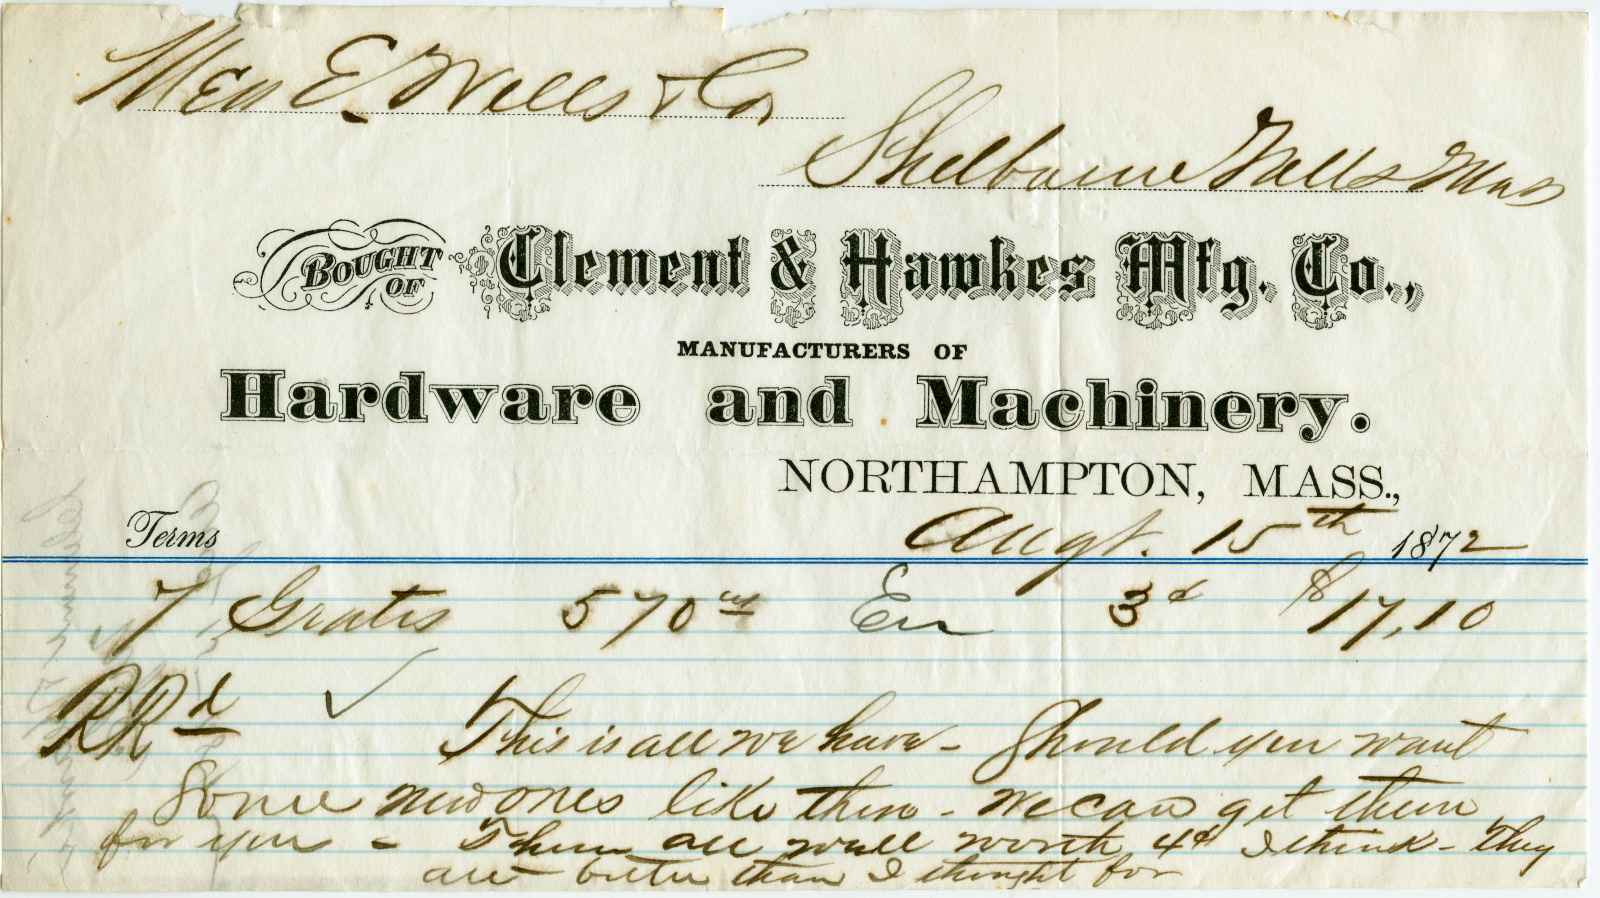 Mess E. Wells & Co,
Shelburne Falls Mass
BOUGHT OF Clement & Hawkes Mfg. Co.,
MANUFACTURERS OF
Hardware and Machinery.
NORTHAMPTON, MASS.,
Terms Augt. 15th 1872
7 Grates 570 3¢ $17,10
RRd ✓ This is all we have - Should you want
Some new ones like them - we can get them
for you - Them all well worth 4¢ I think - They
are better than I thought for